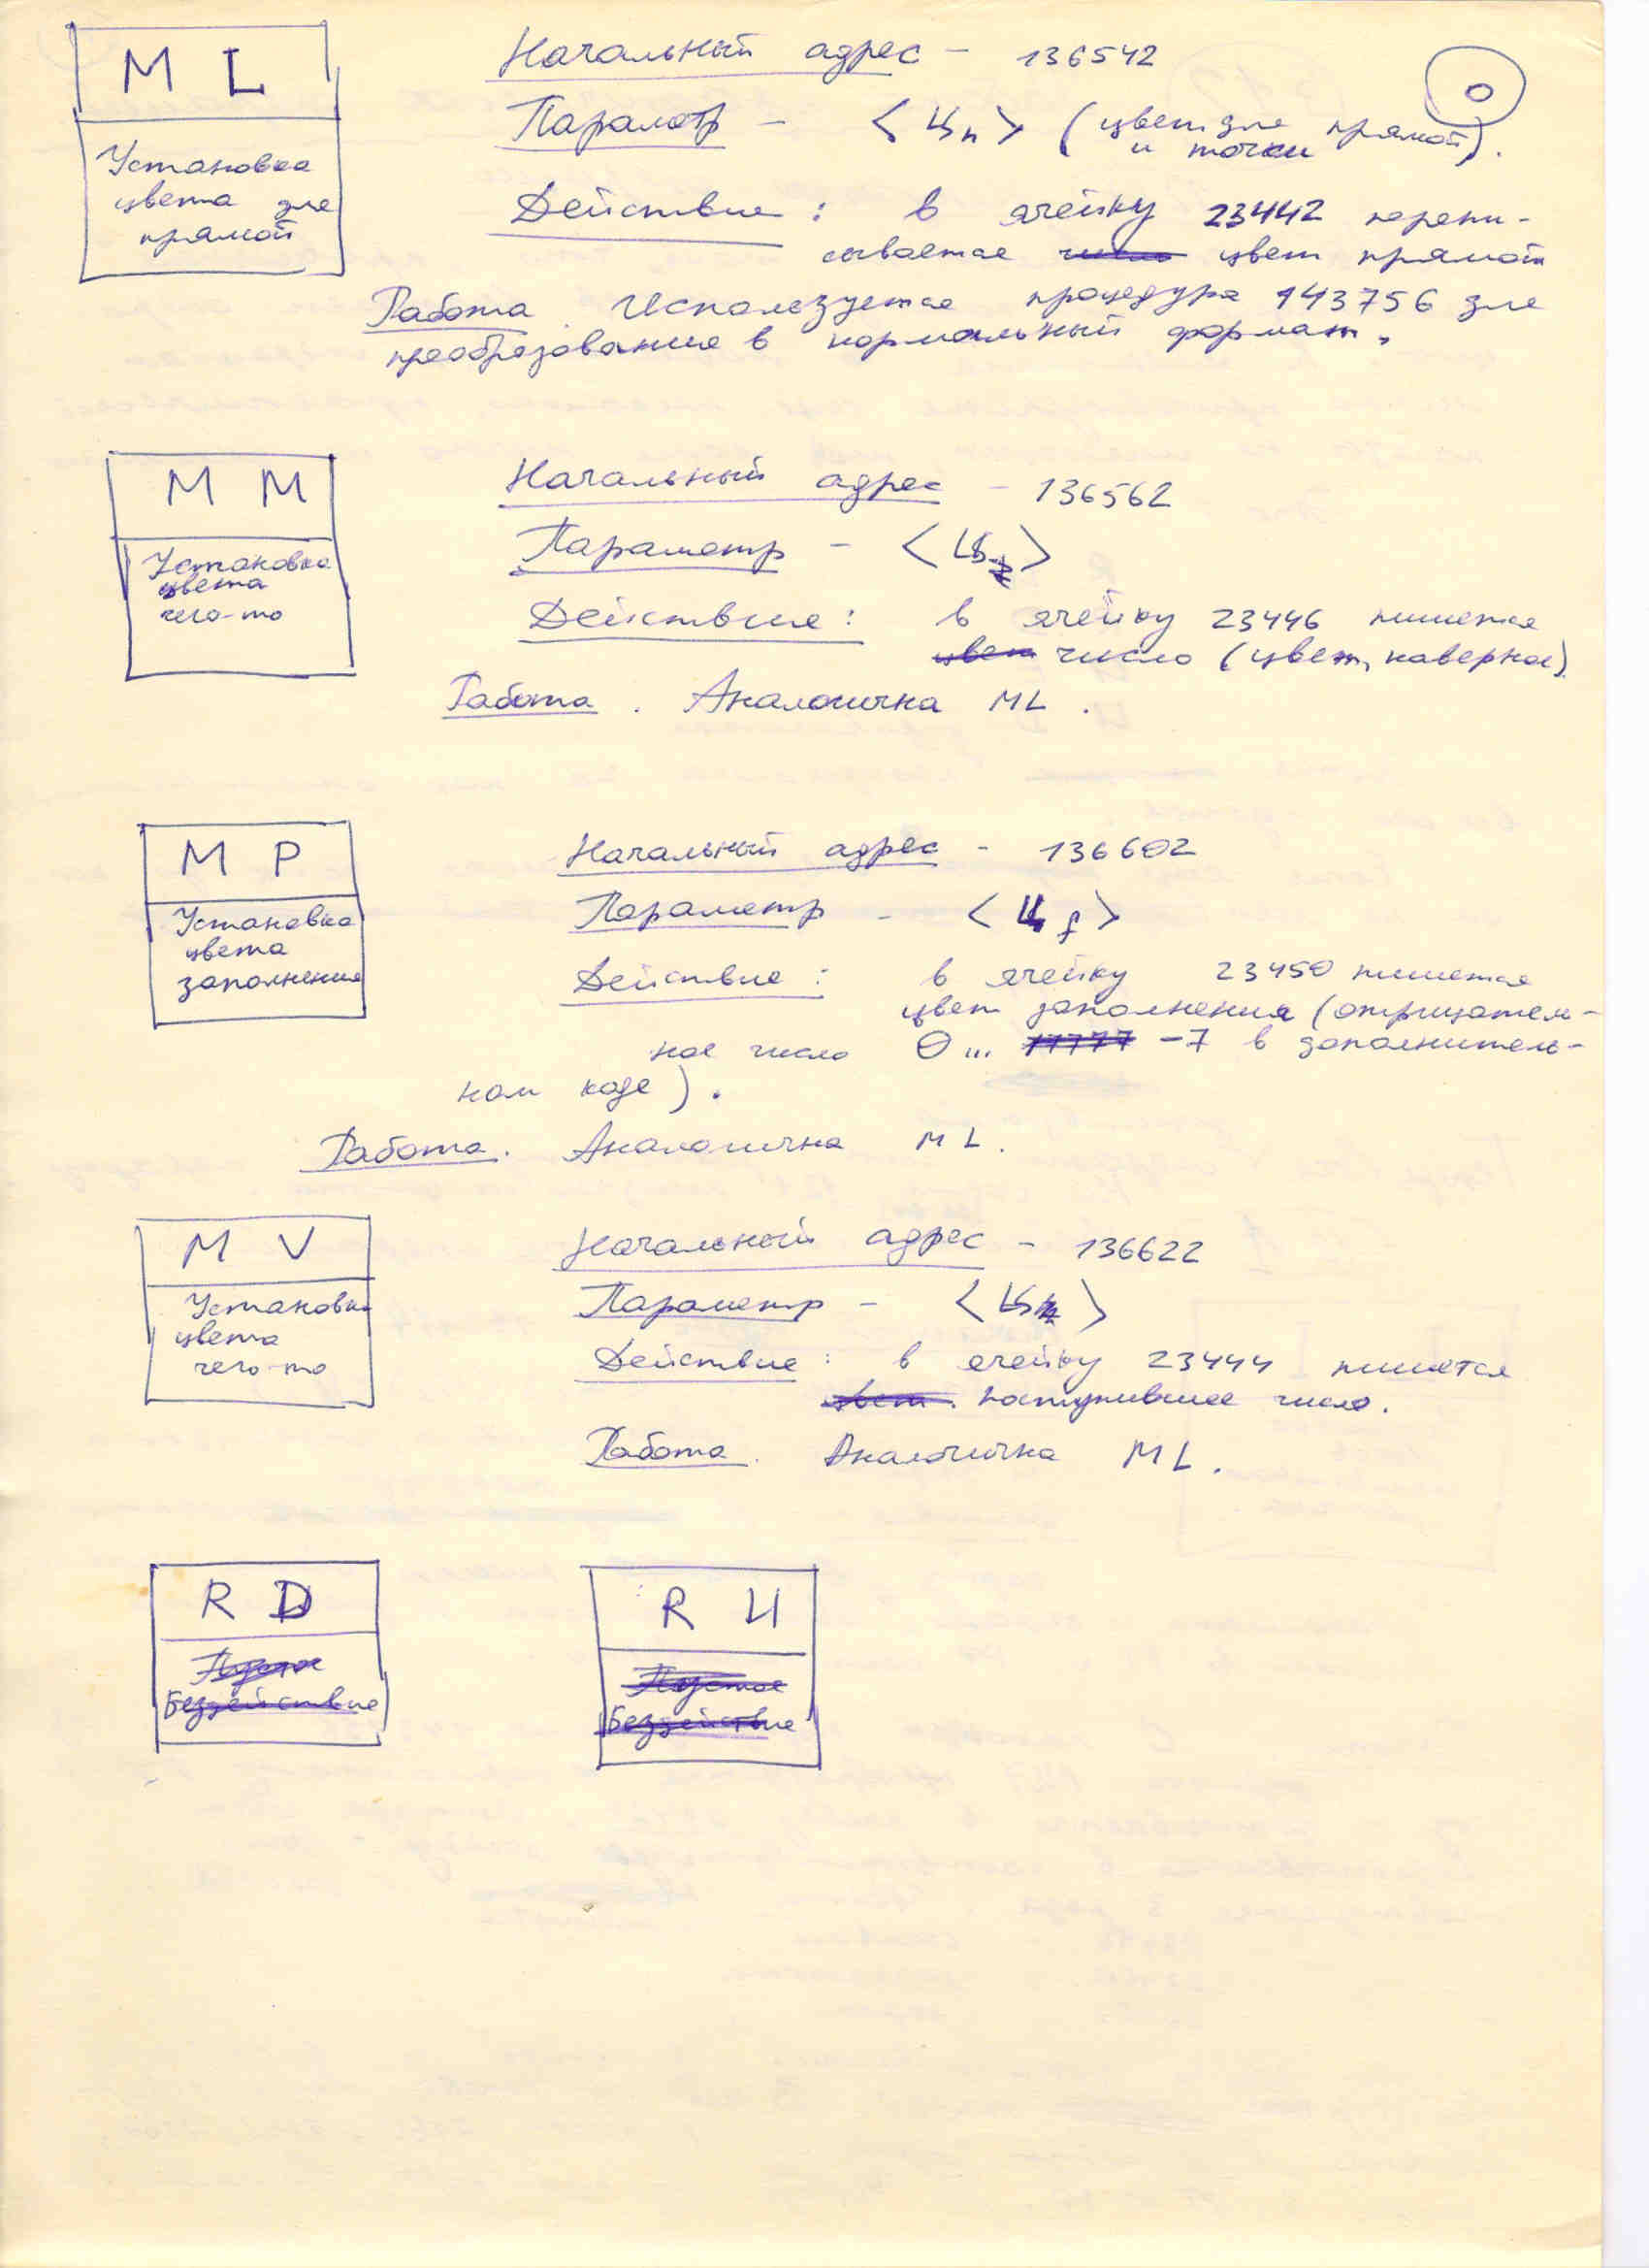 M L
Установка
цвета для
прямой
Начальный адрес - 136542
0
Параметр - <Цп> (цвет для прямой).
и точки
Действие: в ячейку 23442 перепи-
сывается число цвет прямой
Работа. Используется процедура 143756 для
преобразование в нормальный формат.
M M
Установка
цвета
чего-то
Начальный адрес - 136562
Параметр - <Ц>
Действие: в ячейку 23446 пишется
цвет число (цвет, наверное).
Работа. Аналогична ML.
M P
Установка
цвета
заполнения
Начальный адрес - 136602
Параметр - <Ц f>
Действие: в ячейку 23450 пишется
цвет заполнения (отрицатель-
ное число 0... 77777 -7 в дополнитель-
ном коде).
Работа. Аналогична ML.
M V
Установка
цвета
чего-то
Начальный адрес - 136622
Параметр - <Ц>
Действие: в ячейку 23444 пишется
цвет. поступившее число.
Работа. Аналогична ML.
R D
Пустое
Бездействие
R Ц
Пустое
Бездействие